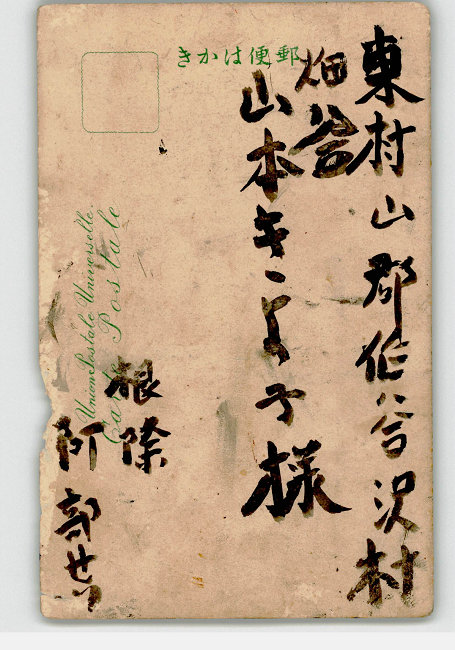 きかは便郵
東村山郡作谷沢村
畑谷
山本きよ子様
根際
阿部せつ
Union Postale Universelle.
Carte Postale